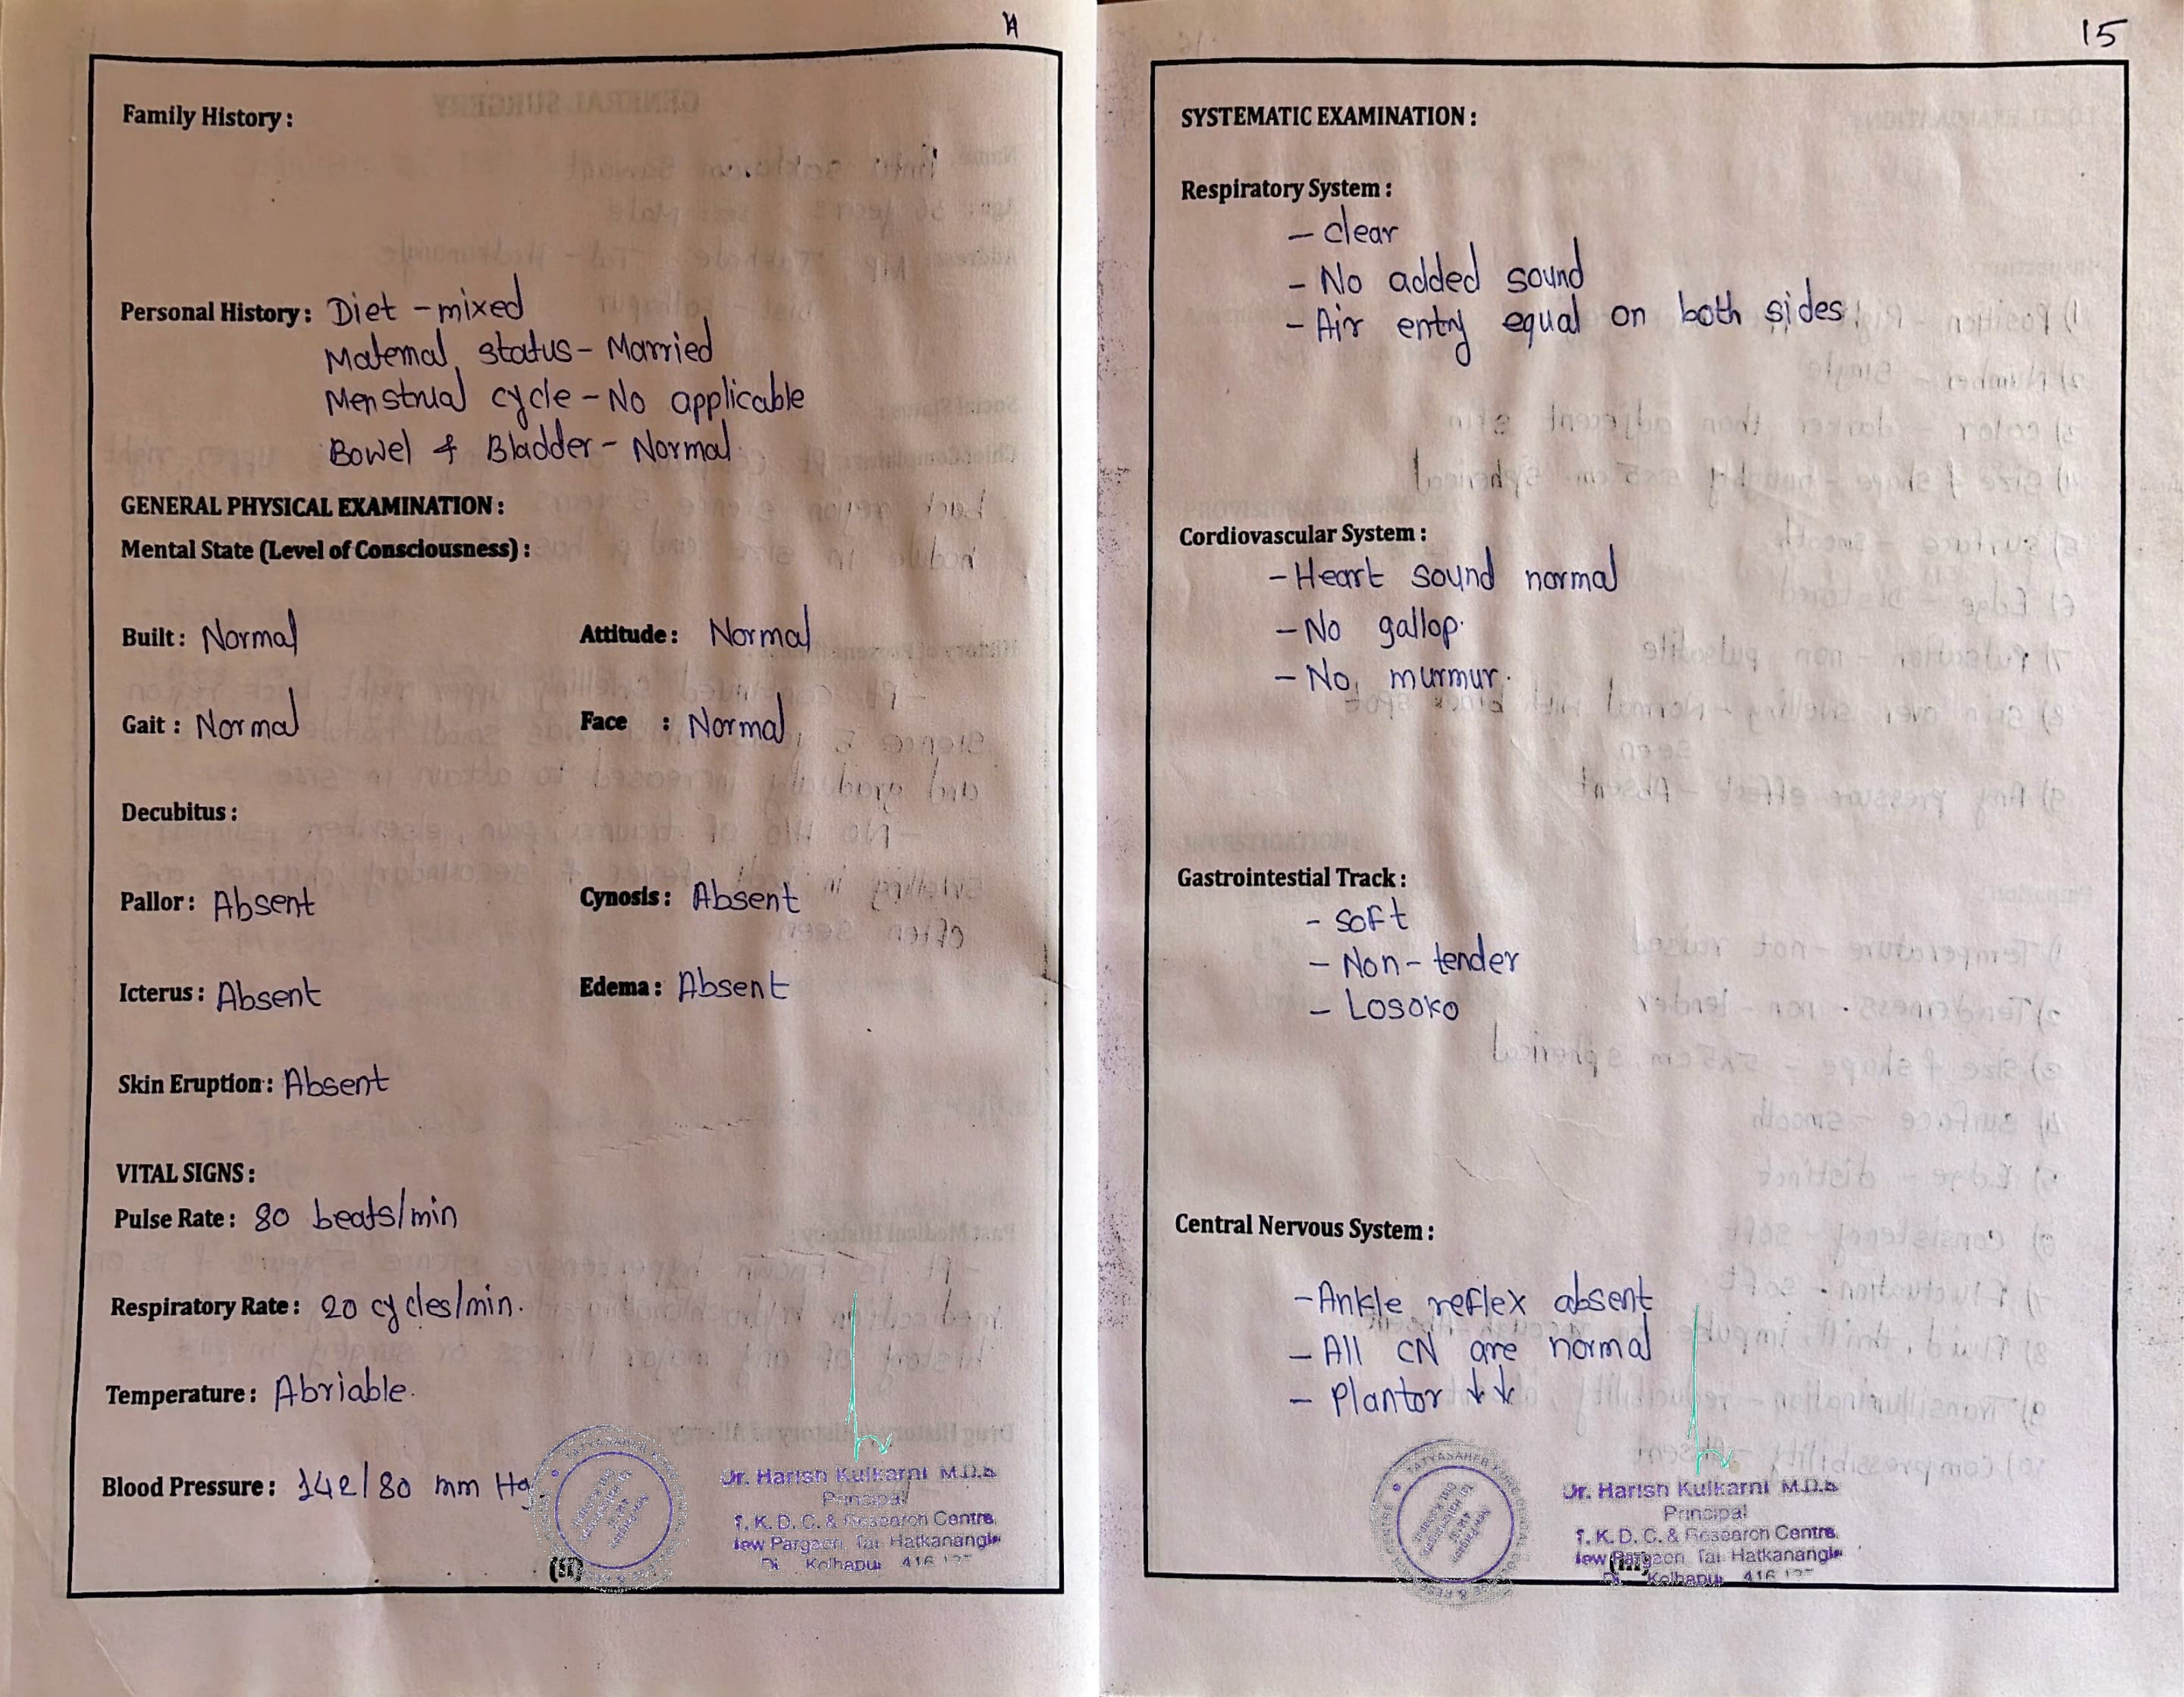 Family History :
Personal History : Diet - mixed
Maternal status - Married
Menstrual cycle - No applicable
Bowel & Bladder - Normal.
GENERAL PHYSICAL EXAMINATION :
Mental State (Level of Consciousness) :
Built : Normal Attitude : Normal
Gait : Normal Face : Normal
Decubitus :
Pallor : Absent Cynosis : Absent
Icterus : Absent Edema : Absent
Skin Eruption : Absent
VITAL SIGNS :
Pulse Rate : 80 beats/min
Respiratory Rate : 20 cycles/min.
Temperature : Abriable.
Blood Pressure : 142/80 mm Hg
Dr. Harish Kulkarni M.D.S
Principal
T. K. D. C. & Research Centre,
New Pargaon, Tal. Hatkanangle
Kolhapur 416
(II)
15
SYSTEMATIC EXAMINATION :
Respiratory System :
- clear
- No added sound
- Air entry equal on both sides.
Cordiovascular System :
- Heart sound normal
- No gallop.
- No murmur.
Gastrointestial Track :
- soft
- Non-tender
- Losoko
Central Nervous System :
- Ankle reflex absent
- All CN are normal
- Plantor ↓↓
Dr. Harish Kulkarni M.D.S
Principal
T. K. D. C. & Research Centre,
New Pargaon, Tal. Hatkanangle
Kolhapur 416